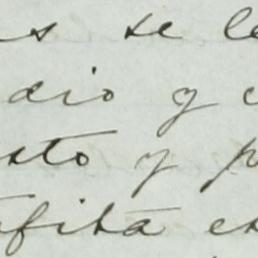 s se le
dio y c
sto y p
fita es